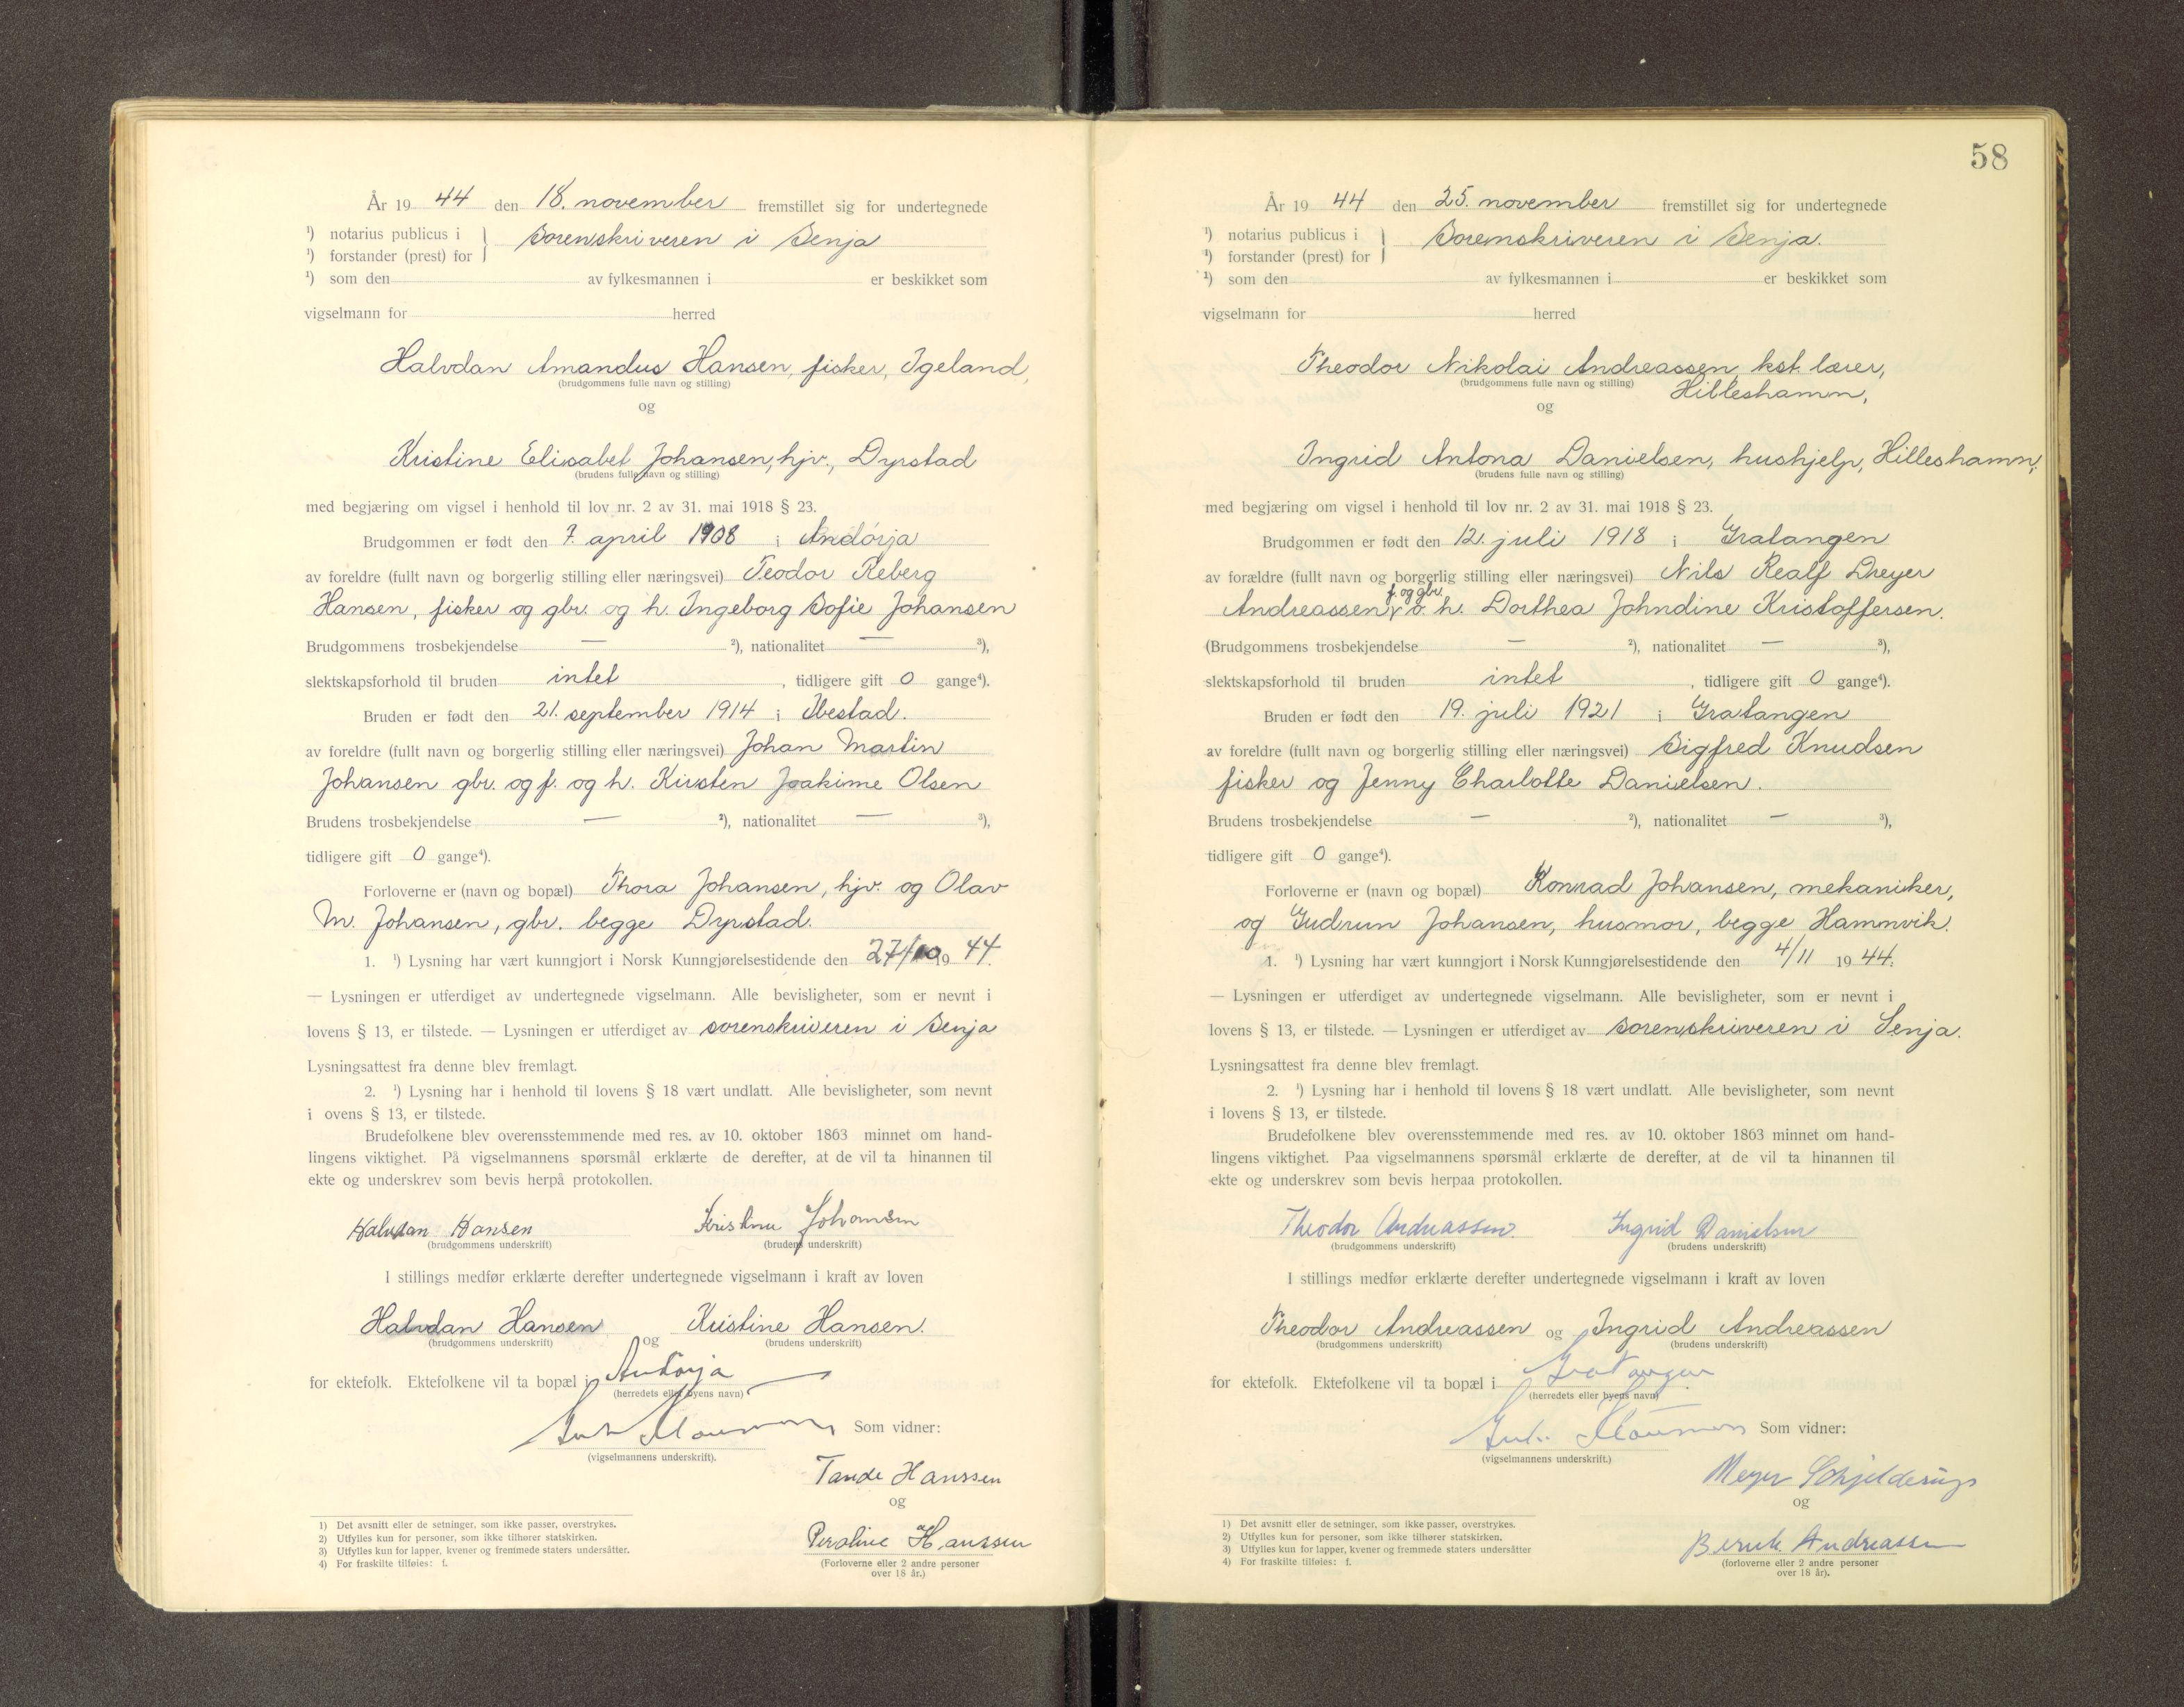 År 19 44 den 18. november fremstillet sig for undertegnede
¹) notarius publicus i } Sorenskriveren i Senja
¹) forstander (prest) for
¹) som den av fylkesmannen i er beskikket som
vigselmann for herred
Halvdan Amandus Hansen, fisker, Igeland,
(brudgommens fulle navn og stilling)
og
Kristine Elisabet Johansen, hjv., Dyrstad
(brudens fulle navn og stilling)
med begjæring om vigsel i henhold til lov nr. 2 av 31. mai 1918 § 23.
Brudgommen er født den 7. april 1908 i Andørja
av foreldre (fullt navn og borgerlig stilling eller næringsvei) Teodor Reberg
Hansen, fisker og gbr. og h. Ingeborg Sofie Johansen
Brudgommens trosbekjendelse — ²), nationalitet — ³),
slektskapsforhold til bruden intet , tidligere gift 0 gange⁴).
Bruden er født den 21. september 1914 i Ibestad.
av foreldre (fullt navn og borgerlig stilling eller næringsvei) Johan Martin
Johansen gbr. og f. og h. Kirsten Joakime Olsen
Brudens trosbekjendelse — ²), nationalitet — ³),
tidligere gift 0 gange⁴).
Forloverne er (navn og bopæl) Thora Johansen, hjv. og Olav
M. Johansen, gbr. begge Dyrstad.
1. ¹) Lysning har vært kunngjort i Norsk Kunngjørelsestidende den 27/10 19 44.
— Lysningen er utferdiget av undertegnede vigselmann. Alle bevisligheter, som er nevnt i
lovens § 13, er tilstede. — Lysningen er utferdiget av sorenskriveren i Senja
Lysningsattest fra denne blev fremlagt.
2. ¹) Lysning har i henhold til lovens § 18 vært undlatt. Alle bevisligheter, som nevnt
i ovens § 13, er tilstede.
Brudefolkene blev overensstemmende med res. av 10. oktober 1863 minnet om hand-
lingens viktighet. På vigselmannens spørsmål erklærte de derefter, at de vil ta hinannen til
ekte og underskrev som bevis herpå protokollen.
Halvdan Hansen Kristine Johansen
(brudgommens underskrift) (brudens underskrift)
I stillings medfør erklærte derefter undertegnede vigselmann i kraft av loven
Halvdan Hansen og Kristine Hansen.
(brudgommens underskrift) (brudens underskrift)
for ektefolk. Ektefolkene vil ta bopæl i Andørja
(herredets eller byens navn)
Som vidner:
(vigselmannens underskrift).
Tande Hanssen
og
Peroline Hanssen
(Forloverne eller 2 andre personer
over 18 år.)
1) Det avsnitt eller de setninger, som ikke passer, overstrykes.
2) Utfylles kun for personer, som ikke tilhører statskirken.
3) Utfylles kun for lapper, kvener og fremmede staters undersåtter.
4) For fraskilte tilføies: f.
58
År 19 44 den 25. november fremstillet sig for undertegnede
¹) notarius publicus i } Sorenskriveren i Senja.
¹) forstander (prest) for
¹) som den av fylkesmannen i er beskikket som
vigselmann for herred
Theodor Nikolai Andreassen, kst. lærer,
(brudgommens fulle navn og stilling) Hilleshamn,
og
Ingrid Antona Danielsen, hushjelp, Hilleshamn,
(brudens fulle navn og stilling)
med begjæring om vigsel i henhold til lov nr. 2 av 31. mai 1918 § 23.
Brudgommen er født den 12. juli 1918 i Gratangen
av forældre (fullt navn og borgerlig stilling eller næringsvei) Nils Realf Dreyer
f. og gbr.
Andreassen o. h. Dorthea Johndine Kristoffersen.
(Brudgommens trosbekjendelse — ²), nationalitet — ³),
slektskapsforhold til bruden intet , tidligere gift 0 gange⁴).
Bruden er født den 19. juli 1921 i Gratangen
av foreldre (fullt navn og borgerlig stilling eller næringsvei) Sigfred Knudsen
fisker og Jenny Charlotte Danielsen.
Brudens trosbekjendelse — ²), nationalitet — ³),
tidligere gift 0 gange⁴).
Forloverne er (navn og bopæl) Konrad Johansen, mekaniker,
og Gudrun Johansen, husmor, begge Hamnvik.
1. ¹) Lysning har vært kunngjort i Norsk Kunngjørelsestidende den 4/11 19 44.
— Lysningen er utferdiget av undertegnede vigselmann. Alle bevisligheter, som er nevnt i
lovens § 13, er tilstede. — Lysningen er utferdiget av sorenskriveren i Senja.
Lysningsattest fra denne blev fremlagt.
2. ¹) Lysning har i henhold til lovens § 18 vært undlatt. Alle bevisligheter, som nevnt
i lovens § 13, er tilstede.
Brudefolkene blev overensstemmende med res. av 10. oktober 1863 minnet om hand-
lingens viktighet. Paa vigselmannens spørsmål erklærte de derefter, at de vil ta hinannen til
ekte og underskrev som bevis herpaa protokollen.
Theodor Andreassen. Ingrid Danielsen
(brudgommens underskrift) (brudens underskrift)
I stillings medfør erklærte derefter undertegnede vigselmann i kraft av loven
Theodor Andreassen og Ingrid Andreassen
(brudgommens underskrift) (brudens underskrift)
for ektefolk. Ektefolkene vil ta bopæl i Gratangen
(herredets eller byens navn)
Som vidner:
(vigselmannens underskrift.)
Meyer Schjelderup
og
Andreassen
(forloverne eller 2 andre personer
over 18 år).
1) Det avsnitt eller de setninger, som ikke passer, overstrykes.
2) Utfylles kun for personer, som ikke tilhører statskirken.
3) Utfylles kun for lapper, kvener og fremmede staters undersåtter
4) For fraskilte tilføies: f.